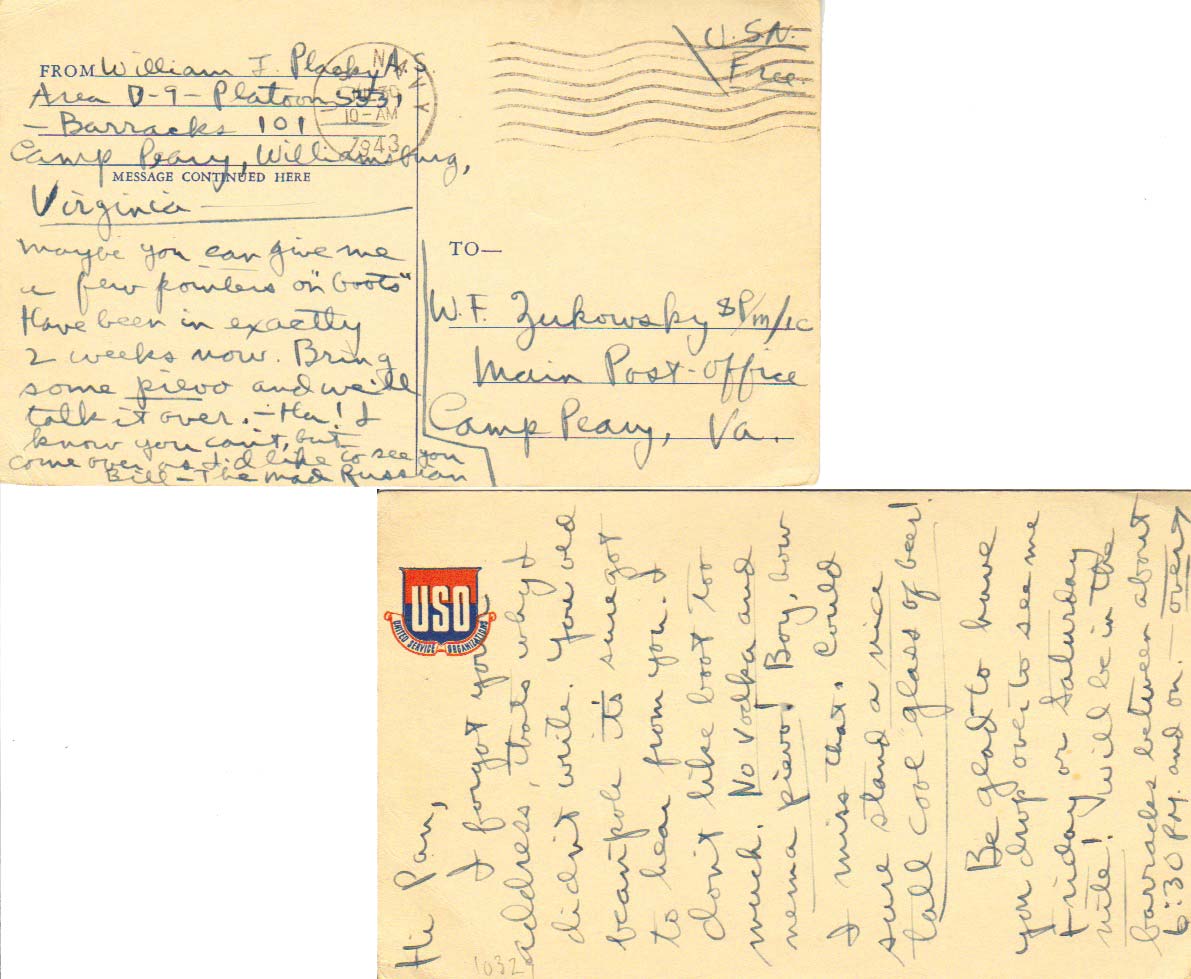 FROM William J. Placky A.S.
Area D-9 - Platoon 5531
- Barracks 101
Camp Peary, Williamsburg,
MESSAGE CONTINUED HERE
Virginia
maybe you can give me
a few pointers on "boots"
Have been in exactly
2 weeks now. Bring
some pievo and we'll
talk it over. - Ha! I
know you can't, but
come over as I'd like to see you
Bill - The Mad Russian
10-AM
1943
N.Y.
U.S.N.
Free.
TO—
W.F. Zukowsky SP/m/1c
Main Post-Office
Camp Peary, Va.
USO
UNITED SERVICE ORGANIZATIONS
Hi Pan,
I forgot your
address, thats why I
didn't write. You old
beanpole it's sure got
to hear from you. I
don't like boot too
much. No Vodka and
nema pievo, Boy, how
I miss that. Could
sure stand a nice
tall cool glass of beer!
Be glad to have
you drop over to see me
Friday or Saturday
nite! Will be in the
barracks between about
6:30 P.M. and on. - over
1032